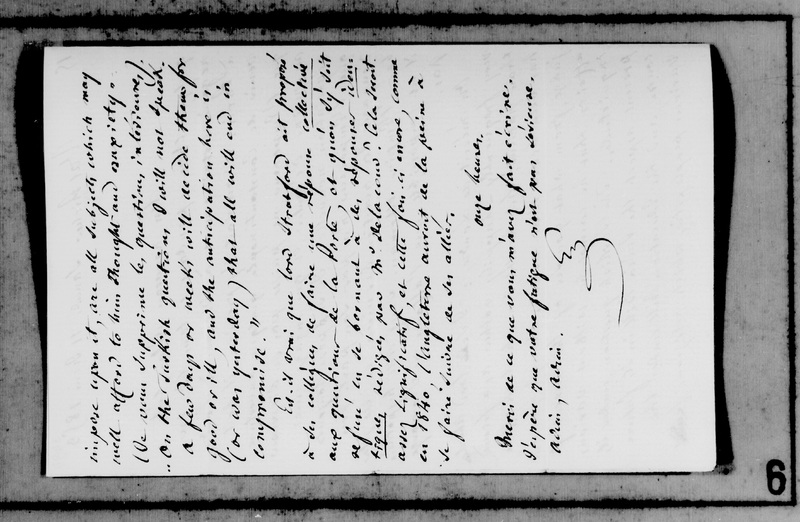 impose upon it, are all subjects which may
well afford to him thought and anxiety.
(Je vous supprime les questions intérieures).
"On the Turkish questions I will not speak.
a few days or weeks will decide them for
good or ill, and the anticipation here is
(or was yesterday) that all will end in
compromise."
Est-il vrai que lord Stratford ait proposé
à ses collègues de faire une réponse collective
aux questions de la Porte, et qu'on s'y soit
refusé en se bornant à des réponses iden
tiques, rédigées par Mr. de la cour? Cela seroit
assez significatif, et cette fois-ci encore, comme
en 1840, l'Angleterre auroit de la peine à
se faire suivre de ses alliés.
onze heures.
Merci de ce que vous m'avez fait écrire.
J'espère que votre fatigue n'est pas sérieuse.
Adieu, adieu.
6